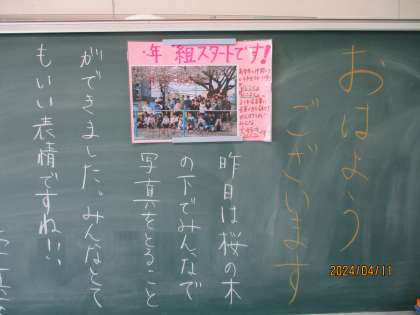 おはよう
ございます
年 組スタートです!
昨日は桜の木
の下でみんなで
写真をとること
ができました。みんなとて
もいい表情ですね!!
2024/04/11